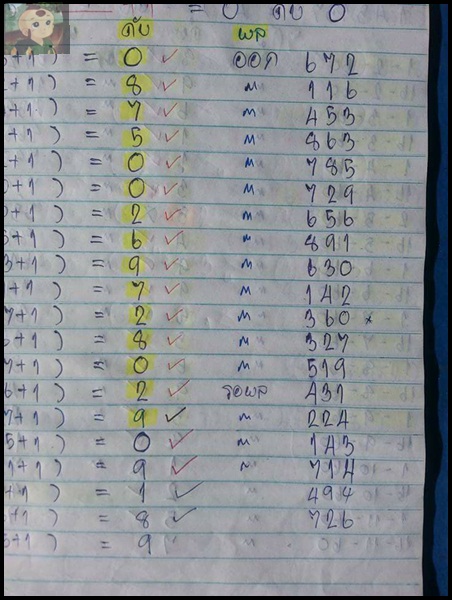 = 0 ดับ 0
ดับ ผล
5+1) = 0 ✓ ออก 672
+1) = 8 ✓ " 116
+1) = 7 ✓ " 453
+1) = 5 ✓ " 863
+1) = 0 ✓ " 785
0+1) = 0 ✓ " 729
0+1) = 2 ✓ " 656
5+1) = 6 ✓ " 891
3+1) = 9 ✓ " 630
+1) = 7 ✓ " 142
7+1) = 2 ✓ " 360 ×
+1) = 8 ✓ " 327
7+1) = 0 ✓ " 519
6+1) = 2 ✓ รอผล 431
7+1) = 9 ✓ " 224
5+1) = 0 ✓ " 143
1+1) = 9 ✓ " 714
+1) = 1 ✓ " 494
+1) = 8 ✓ " 726
5+1) = 9 "